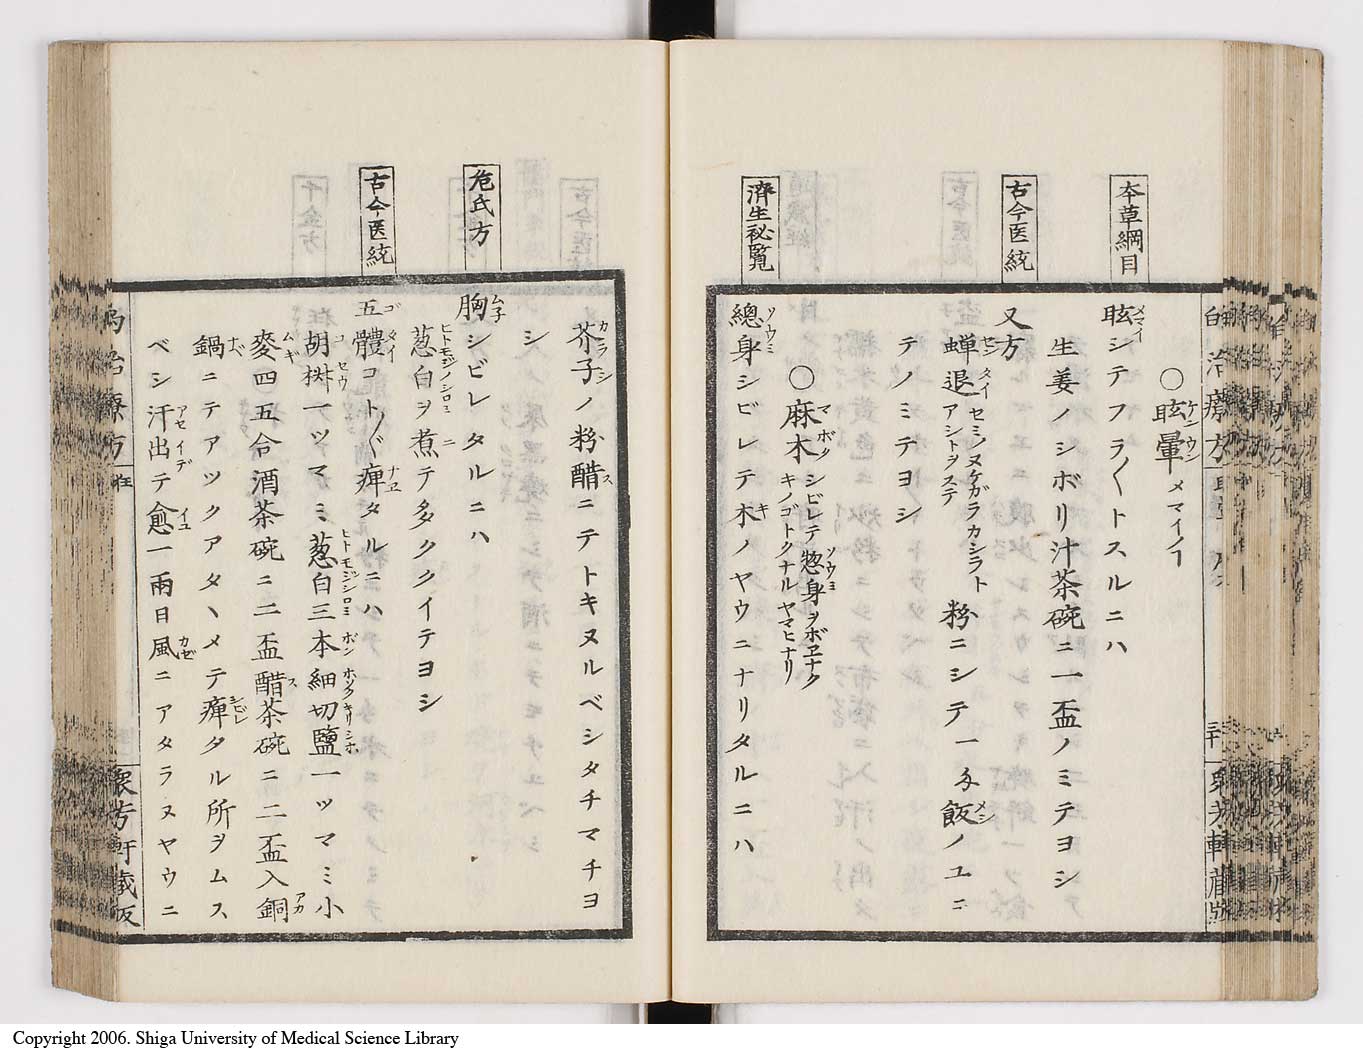 本草綱目
古今医統
濟生祕覽
〇眩暈メマイノ┐
眩シテフラ〱トスルニハ
生姜ノシボリ汁茶碗ニ一盃ノミテヨシ
又方
蝉退セミノヌケガラカシラトアシトヲステ 粉ニシテ一匁飯ノユニ
テノミテヨシ
〇麻木シビレテ惣身ヲボヱナクキノゴトクナルヤマヒナリ
總身シビレテ木ノヤウニナリタルニハ
衆芳軒蔵版
危氏方
古今医統
芥子ノ粉醋ニテトキヌルベシタチマチヨ
シ
胸シビレタルニハ
葱白ヲ煮テ多ククイテヨシ
五體コト〲ク痺タルニハ
胡椒一ツマミ葱白三本細切鹽一ツマミ小
麥四五合酒茶碗ニ二盃醋茶碗ニ二盃入銅
鍋ニテアツクアタヽメテ痺タル所ヲムス
ベシ汗出テ愈一兩日風ニアタラヌヤウニ
衆芳軒蔵版
Copyright 2006. Shiga University of Medical Science Library